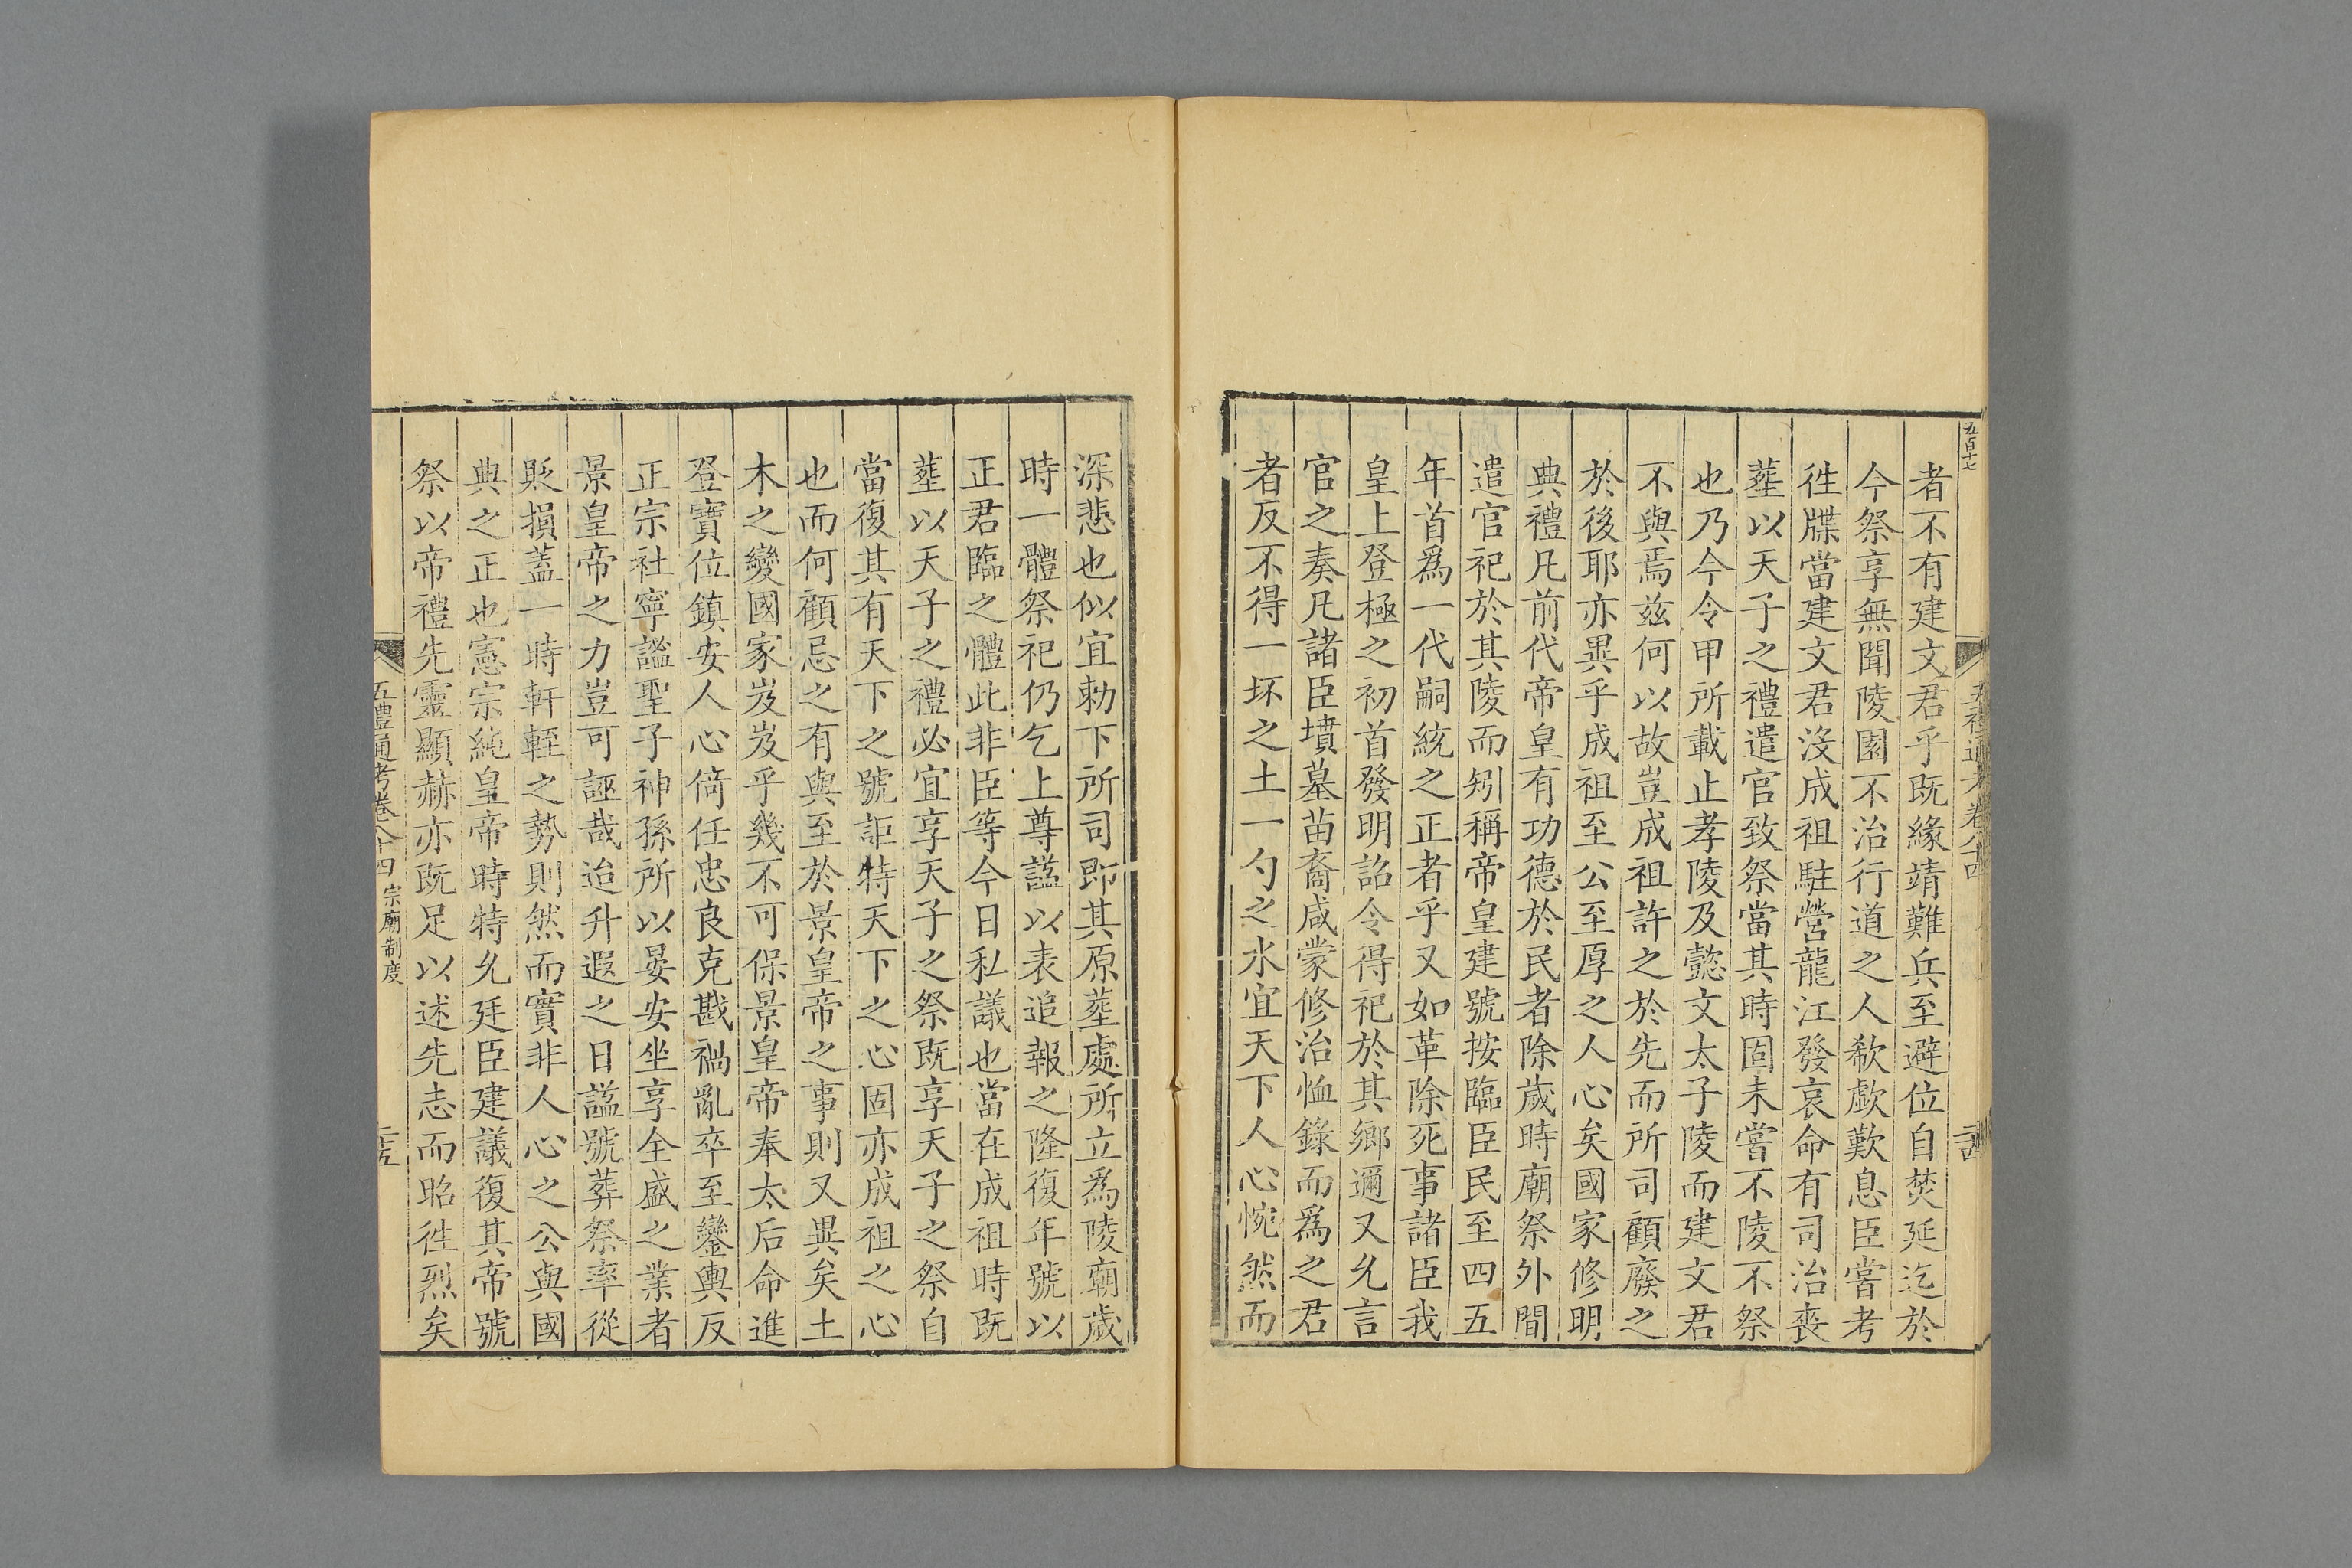 五百十七
五禮通考卷八十四
者不有建文君乎既緣靖難兵至避位自焚延迄於
今祭享無聞陵園不治行道之人欷歔歎息臣嘗考
徃牒當建文君沒成祖駐營龍江發哀命有司治喪
塟以天子之禮遣官致祭當其時固未嘗不陵不祭
也乃今令甲所載止孝陵及懿文太子陵而建文君
不與焉兹何以故豈成祖許之於先而所司顧廢之
於後耶亦異乎成祖至公至厚之人心矣國家修明
典禮凡前代帝皇有功德於民者除歲時廟祭外間
遣官祀於其陵而矧稱帝皇建號按臨臣民至四五
年首爲一代嗣統之正者乎又如革除死事諸臣我
皇上登極之初首發明詔令得祀於其鄉邇又允言
官之奏凡諸臣墳墓苗裔咸蒙修治恤錄而爲之君
者反不得一坏之土一勺之水宜天下人心惋然而
深悲也似宜勅下所司即其原塟處所立爲陵廟歲
時一體祭祀仍乞上尊謚以表追報之隆復年號以
正君臨之體此非臣等今日私議也當在成祖時既
塟以天子之禮必宜享天子之祭既享天子之祭自
當復其有天下之號詎特天下之心固亦成祖之心
也而何顧忌之有與至於景皇帝之事則又異矣土
木之變國家岌岌乎幾不可保景皇帝奉太后命進
登寶位鎮安人心倚任忠良克戡禍亂卒至鑾輿反
正宗社寧謐聖子神孫所以晏安坐享全盛之業者
景皇帝之力豈可誣哉迨升遐之日謚號葬祭率從
貶損蓋一時軒輊之勢則然而實非人心之公與國
典之正也憲宗純皇帝時特允廷臣建議復其帝號
祭以帝禮先靈顯赫亦既足以述先志而昭徃烈矣
五禮通考卷八十四 宗廟制度